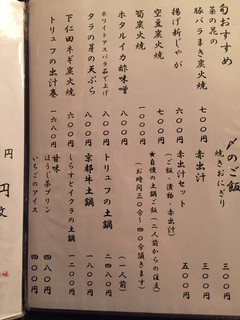 旬おすすめ
菜の花の
豚バラまき炭火焼 七〇〇円
揚げ新じゃが 六〇〇円
空豆炭火焼 七〇〇円
筍炭火焼 一〇〇〇円
ホタルイカ酢味噌 八〇〇円
ホワイトアスパラ茹で上げ
タラの芽の天ぷら 八〇〇円
下仁田ネギ炭火焼 六〇〇円
トリュフの出汁巻 一六八〇円
〆のご飯
焼きおにぎり 三〇〇円
赤出汁 三〇〇円
赤出汁セット 五〇〇円
(ご飯・漬物・赤出汁)
★自慢の土鍋ご飯(二人前からの注文)
(お時間三〇分〜四〇分頂きます)
(一人前)
トリュフの土鍋
京都牛土鍋
しらすとイクラの土鍋
甘味
ほうじ茶プリン 四八〇円
いちごのアイス 四〇〇円
円
円